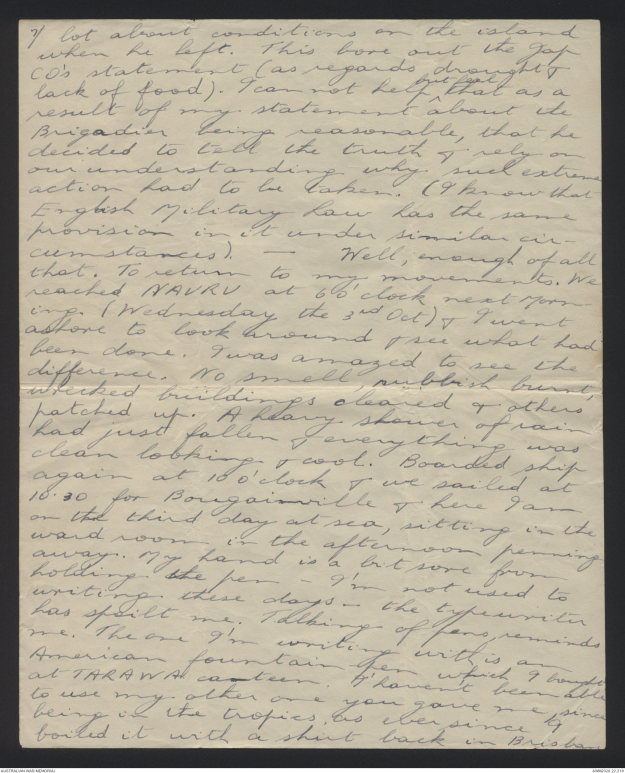 7/ lot about conditions on the island
when he left. This bore out the Jap
CO's statement (as regards drought &
lack of food). I can not help but feel that as a
result of my statement about the
Brigadier being reasonable, that he
decided to tell the truth & rely on
our understanding why such extreme
action had to be taken. (I know that
English Military Law has the same
provision in it under similar cir-
cumstances). — Well, enough of all
that. To return to my movements. We
reached NAURU at 6 o'clock next morn-
ing. (Wednesday the 3rd Oct) & I went
ashore to look around & see what had
been done. I was amazed to see the
difference. No smell, rubbish burnt,
wrecked buildings cleared & others
patched up. A heavy shower of rain
had just fallen & everything was
clean looking & cool. Boarded ship
again at 10 o'clock & we sailed at
10.30 for Bougainville & here I am
on the third day at sea, sitting in the
ward room in the afternoon penning
away. My hand is a bit sore from
holding the pen – I'm not used to
writing these days – the typewriter
has spoilt me. Talking of pens reminds
me. The one I'm writing with is an
American fountain pen which I bought
at TARAWA canteen. I haven't been able
to use my other one you gave me, since
being in the tropics, as ever since I
boiled it with a shirt back in Brisbane
AUSTRALIAN WAR MEMORIAL